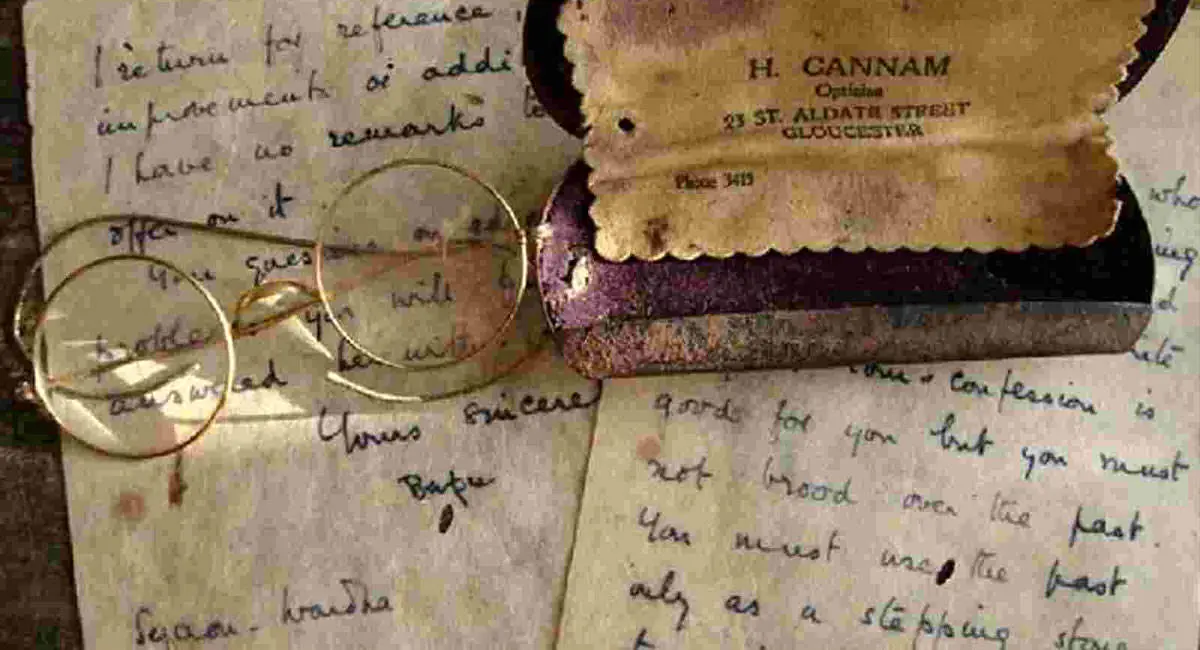 I return for reference
improvements or addi
I have no remarks to
offer on it.
You
proble you will b
answered he
Yours sincere
Bapu
Segaon-Wardha
H. CANNAM
Optician
23 ST. ALDATE STREET
GLOUCESTER
Phone 3415
who
ing
d
ite
confession is
good for you but you must
not brood over the past.
You must use the past
only as a stepping stone